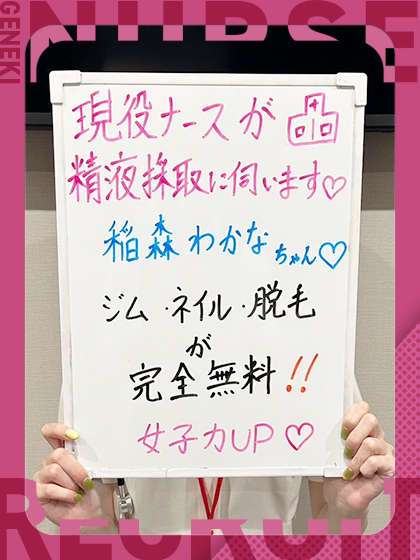 NURSE
GENEKI
現役ナースが
精液採取に伺います♡
稲森わかなちゃん♡
ジム・ネイル・脱毛
が
完全無料!!
女子力UP♡
GENEKI
RECRUIT